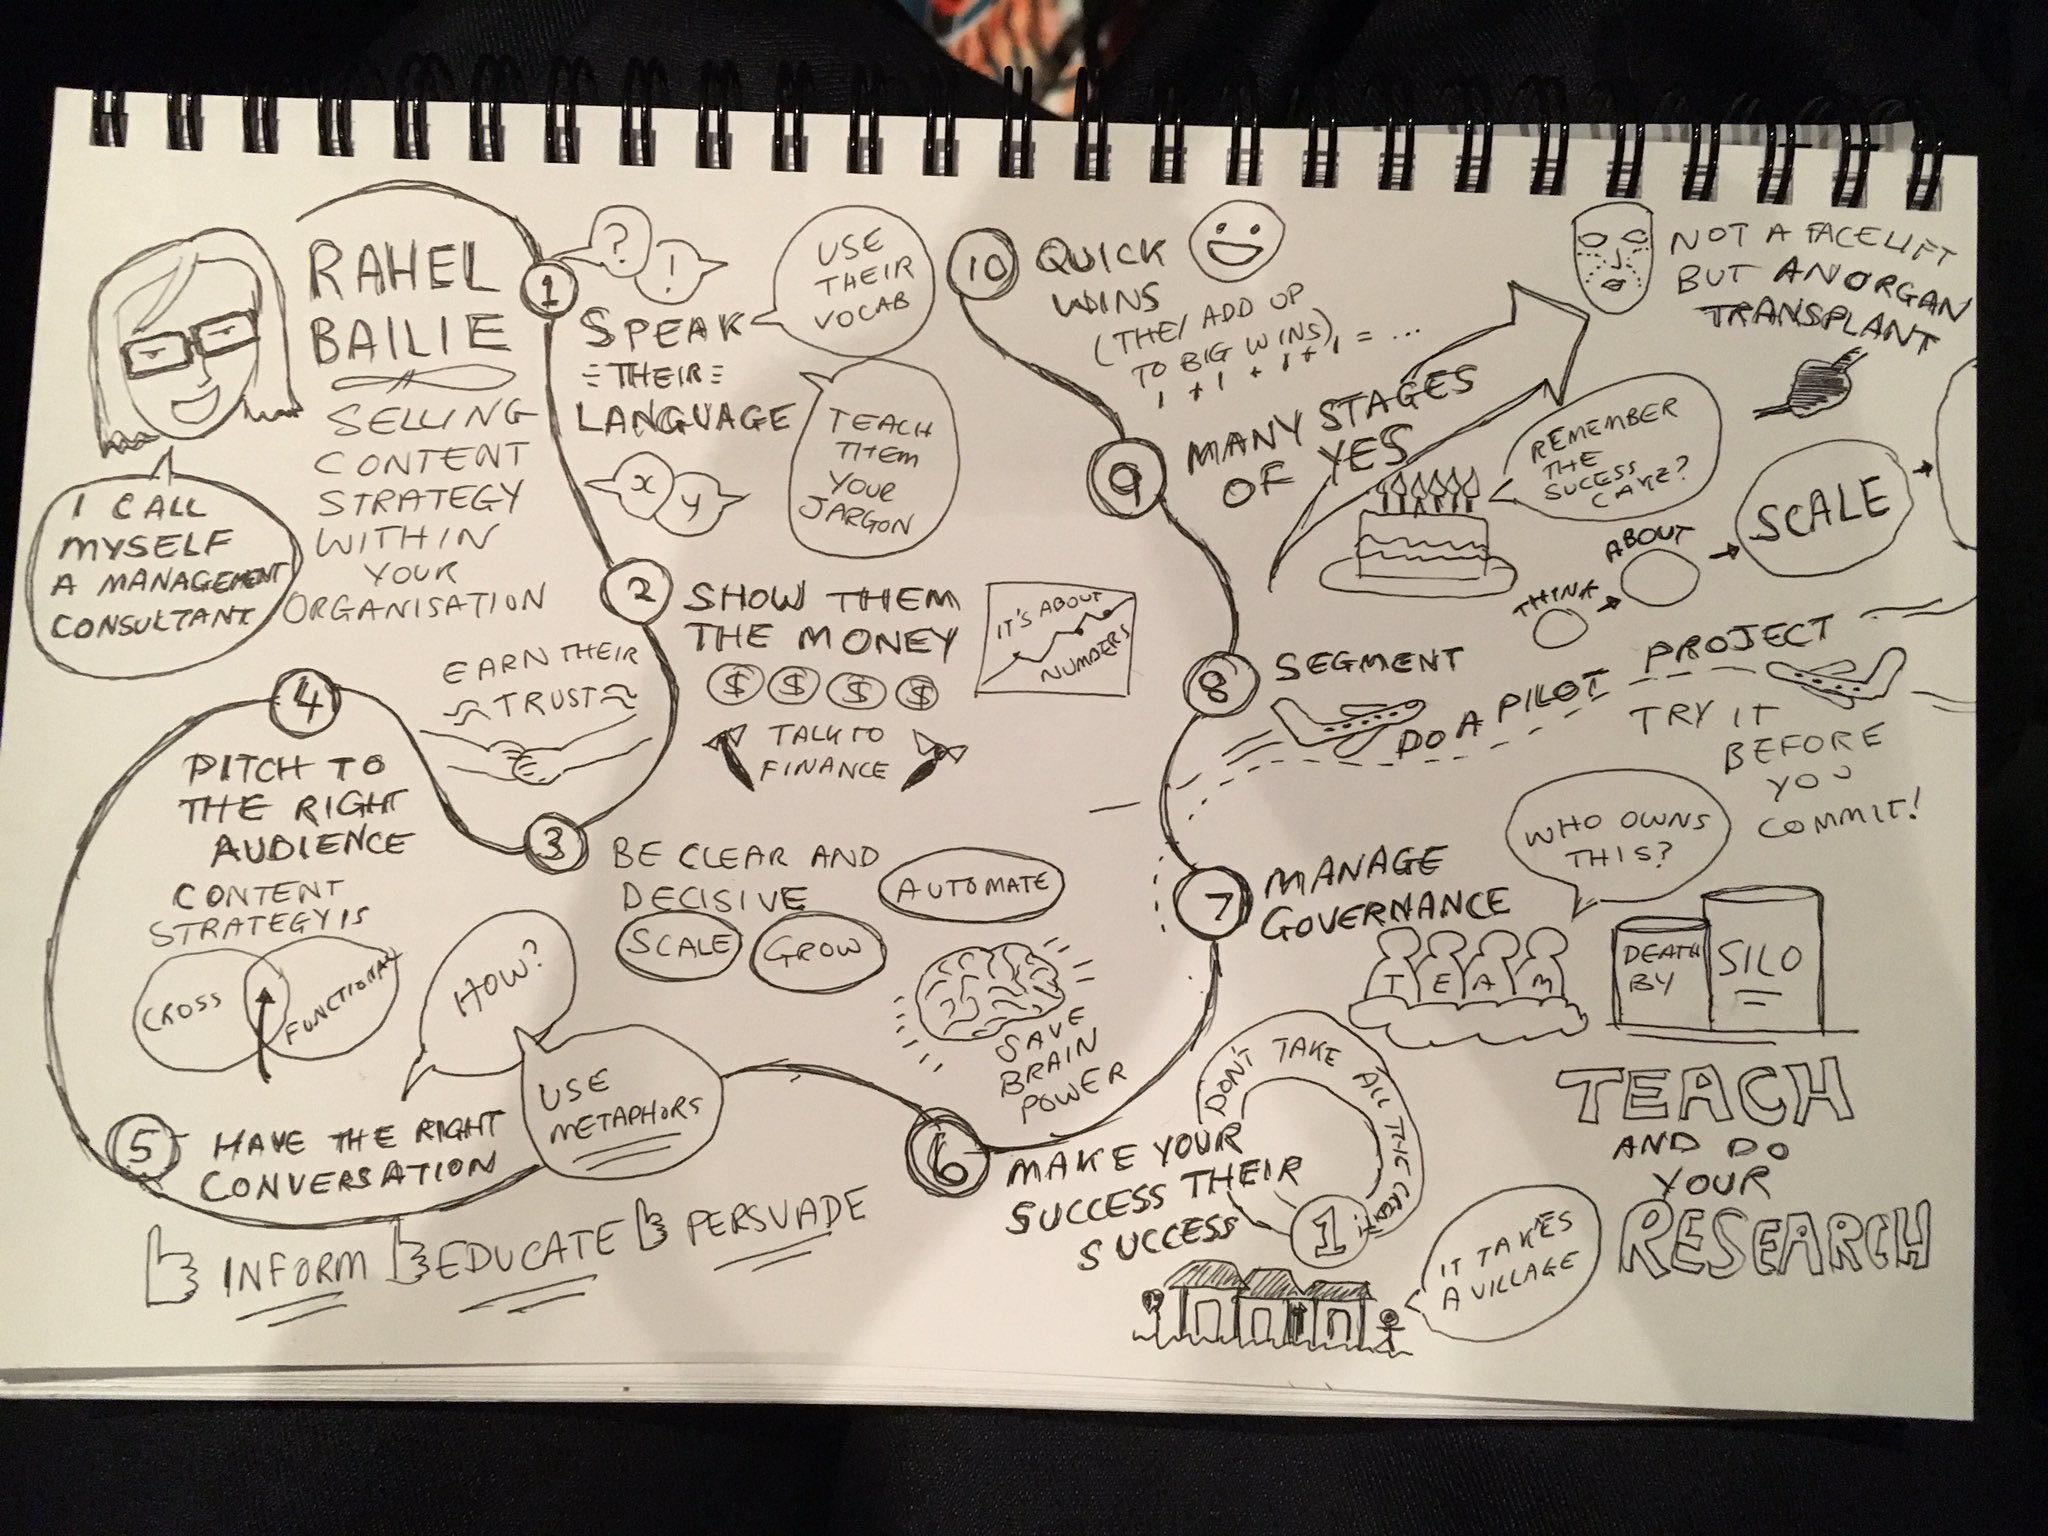 RAHEL
BAILIE
SELLING
CONTENT
STRATEGY
WITHIN
YOUR
ORGANISATION
I CALL
MYSELF
A MANAGEMENT
CONSULTANT
1
?
!
SPEAK
THEIR
LANGUAGE
USE
THEIR
VOCAB
TEACH
THEM
YOUR
JARGON
X
Y
2
SHOW THEM
THE MONEY
$ $ $ $
TALK TO
FINANCE
IT'S ABOUT
NUMBERS
EARN THEIR
TRUST
3
BE CLEAR AND
DECISIVE
AUTOMATE
SCALE
GROW
SAVE
BRAIN
POWER
4
PITCH TO
THE RIGHT
AUDIENCE
CONTENT
STRATEGY IS
CROSS
FUNCTIONAL
5
HAVE THE RIGHT
CONVERSATION
HOW?
USE
METAPHORS
INFORM
EDUCATE
PERSUADE
6
MAKE YOUR
SUCCESS THEIR
SUCCESS
DON'T TAKE ALL THE CREDIT!
1
IT TAKES
A VILLAGE
7
MANAGE
GOVERNANCE
WHO OWNS
THIS?
TEAM
DEATH
BY
SILO
TEACH
AND DO
YOUR
RESEARCH
8
SEGMENT
DO A PILOT PROJECT
TRY IT
BEFORE
YOU
COMMIT!
THINK
ABOUT
SCALE
9
MANY STAGES
OF YES
REMEMBER
THE
SUCESS
CAKE?
10
QUICK
WINS
(THEY ADD UP
TO BIG WINS)
1 + 1 + 1 + 1 = ...
NOT A FACELIFT
BUT AN ORGAN
TRANSPLANT